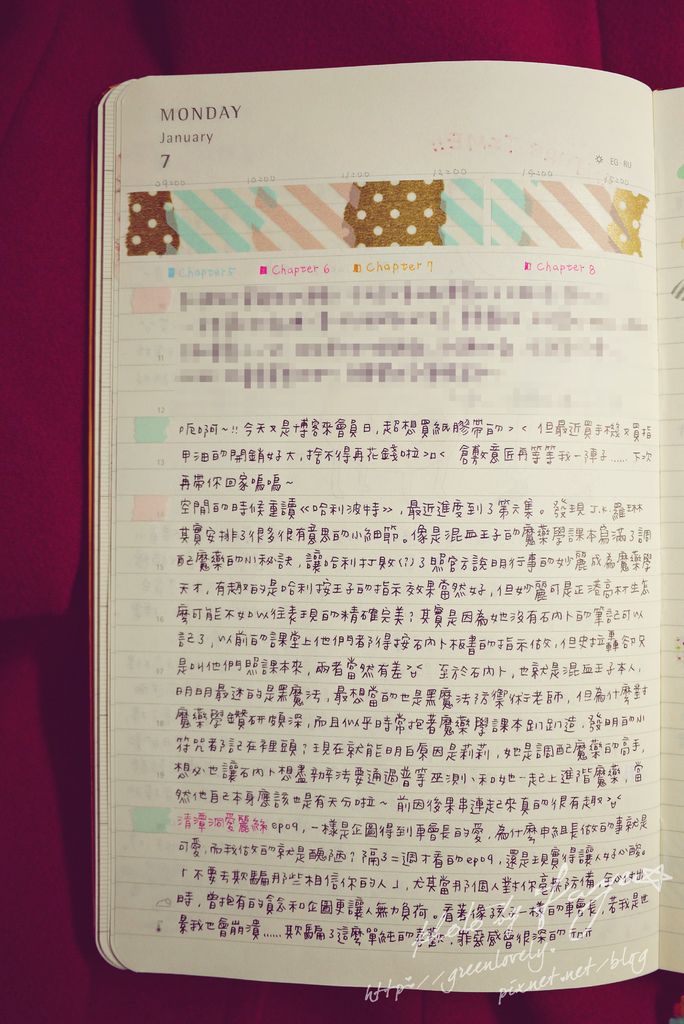 MONDAY
January
7
EG·RU
09:00 10:00 11:00 12:00 14:00 15:00
Chapter 5 Chapter 6 Chapter 7 Chapter 8
11
12
呃啊~!! 今天又是博客來會員日,超想買紙膠帶的>< 但最近買手機又買指
13
甲油的開銷好大,捨不得再花錢啦>口< 倉敷意匠再等等我一陣子......下次
再帶你回家嗚嗚~
空閒的時候重讀《哈利波特》,最近進度到了第六集。發現 J.K.羅琳
其實安排了很多很有意思的小細節。像是混血王子的魔藥學課本寫滿了調
15
配魔藥的小秘訣,讓哈利打敗(?)了照官方說明行事的妙麗成為魔藥學
天才,有趣的是哈利按王子的指示效果當然好,但妙麗可是正港高材生怎
16
麼可能不如以往表現的精確完美?其實是因為她沒有石內卜的筆記可以
記了,以前的課堂上他們都得按石內卜板書的指示做,但史拉轟卻只
17
是叫他們照課本來,兩者當然有差 至於石內卜,也就是混血王子本人,
明明最迷的是黑魔法,最想當的也是黑魔法防禦術老師,但為什麼對
18
魔藥學鑽研頗深,而且似乎時常抱著魔藥學課本趴趴造,發明的小
符咒都記在裡頭?現在就能明白原因是莉莉,她是調配魔藥的高手,
19
想必也讓石內卜想盡辦法要通過普等巫測、和她一起上進階魔藥,當
然他自己本身應該也是有天分啦~ 前因後果串連起來真的很有趣
清潭洞愛麗絲 ep09,一樣是企圖得到車會長的愛,為什麼申組長做的事就是
可愛,而我做的就是醜陋?隔了二週才看的ep09,還是現實得讓人好心酸。
「不要去欺騙那些相信你的人」,尤其當那個人對你毫無防備、全心付出
時,曾抱有的貪念和企圖更讓人無力負荷。看著像孩子一樣的車會長,若我是世
景我也會崩潰......欺騙了這麼單純的喜歡,罪惡感會很深的
photo by
http://greenlovely.
pixnet.net/blog